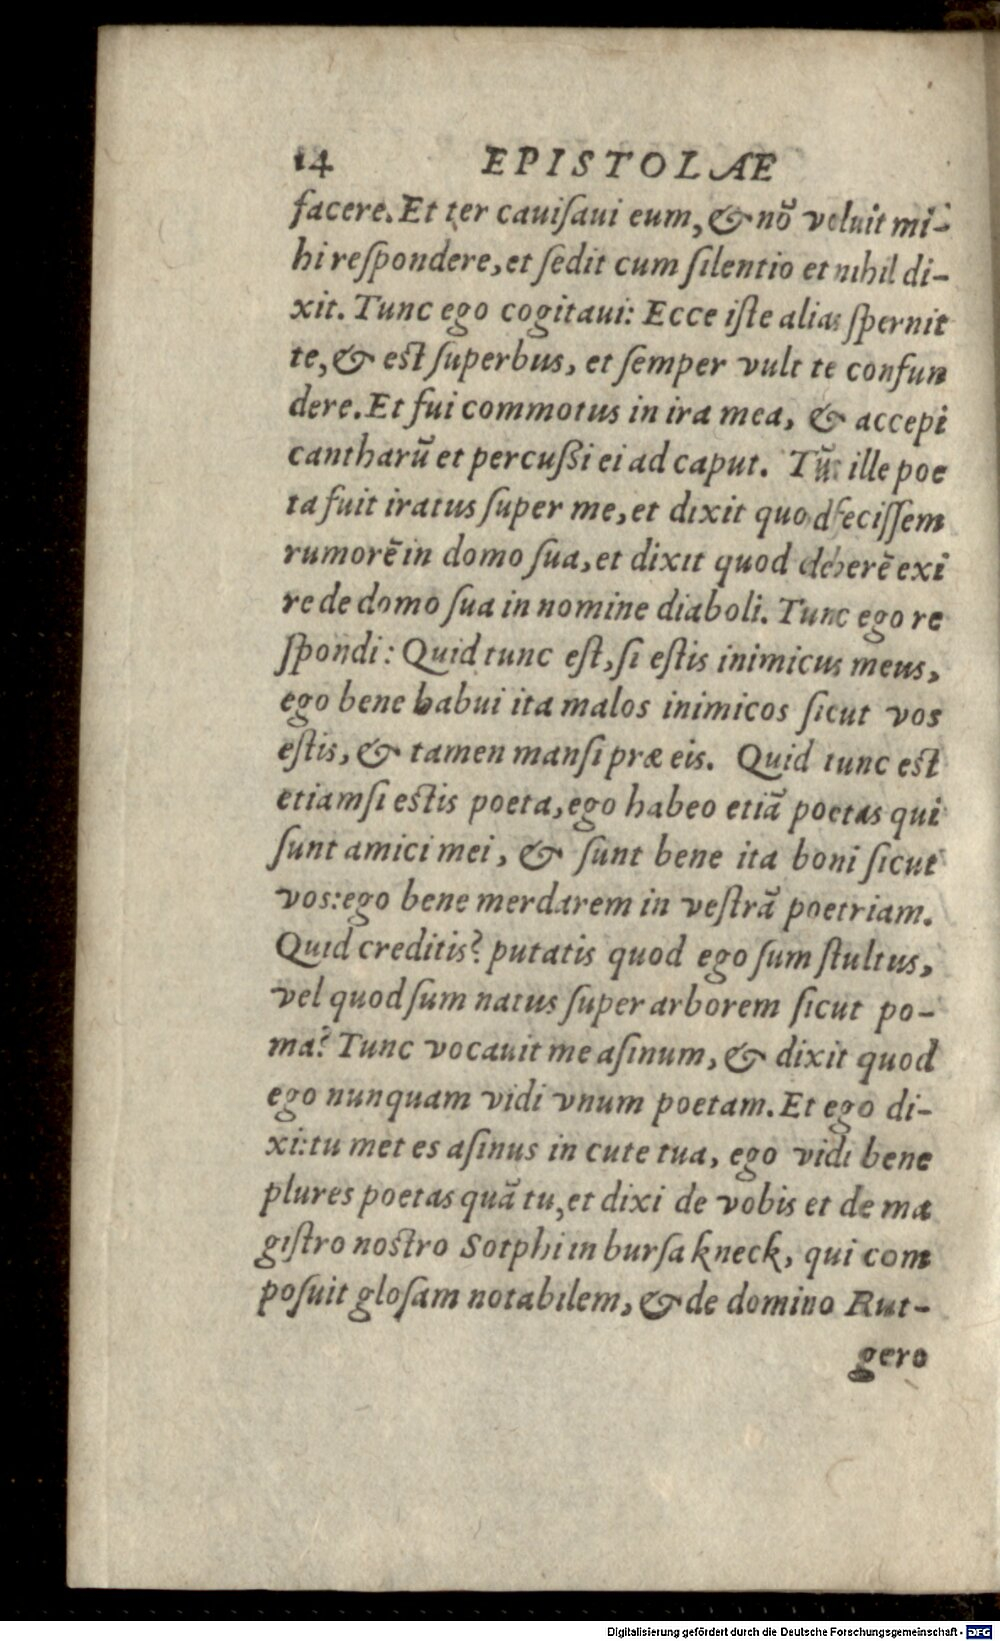 14 EPISTOLÆ
facere. Et ter cauiſaui eum, & nõ voluit mi-
hi reſpondere, et ſedit cum ſilentio et nihil di-
xit. Tunc ego cogitaui: Ecce iſte alias ſpernit
te, & eſt ſuperbus, et ſemper vult te confun
dere. Et fui commotus in ira mea, & accepi
cantharũ et percuſſi ei ad caput. Tũc ille poe
ta fuit iratus ſuper me, et dixit quod feciſſem
rumorẽ in domo ſua, et dixit quod deberẽ exi
re de domo ſua in nomine diaboli. Tunc ego re
ſpondi: Quid tunc eſt, ſi eſtis inimicus meus,
ego bene habui ita malos inimicos ſicut vos
eſtis, & tamen manſi præ eis. Quid tunc eſt
etiamſi eſtis poeta, ego habeo etiã poetas qui
ſunt amici mei, & ſunt bene ita boni ſicut
vos: ego bene merdarem in veſtrã poetriam.
Quid creditis? putatis quod ego ſum ſtultus,
vel quod ſum natus ſuper arborem ſicut po-
ma? Tunc vocauit me aſinum, & dixit quod
ego nunquam vidi vnum poetam. Et ego di-
xi: tu met es aſinus in cute tua, ego vidi bene
plures poetas quã tu, et dixi de vobis et de ma
giſtro noſtro Sotphi in burſa kneck, qui com
poſuit gloſam notabilem, & de domino Rut-
gero
Digitalisierung gefördert durch die Deutsche Forschungsgemeinschaft - DFG